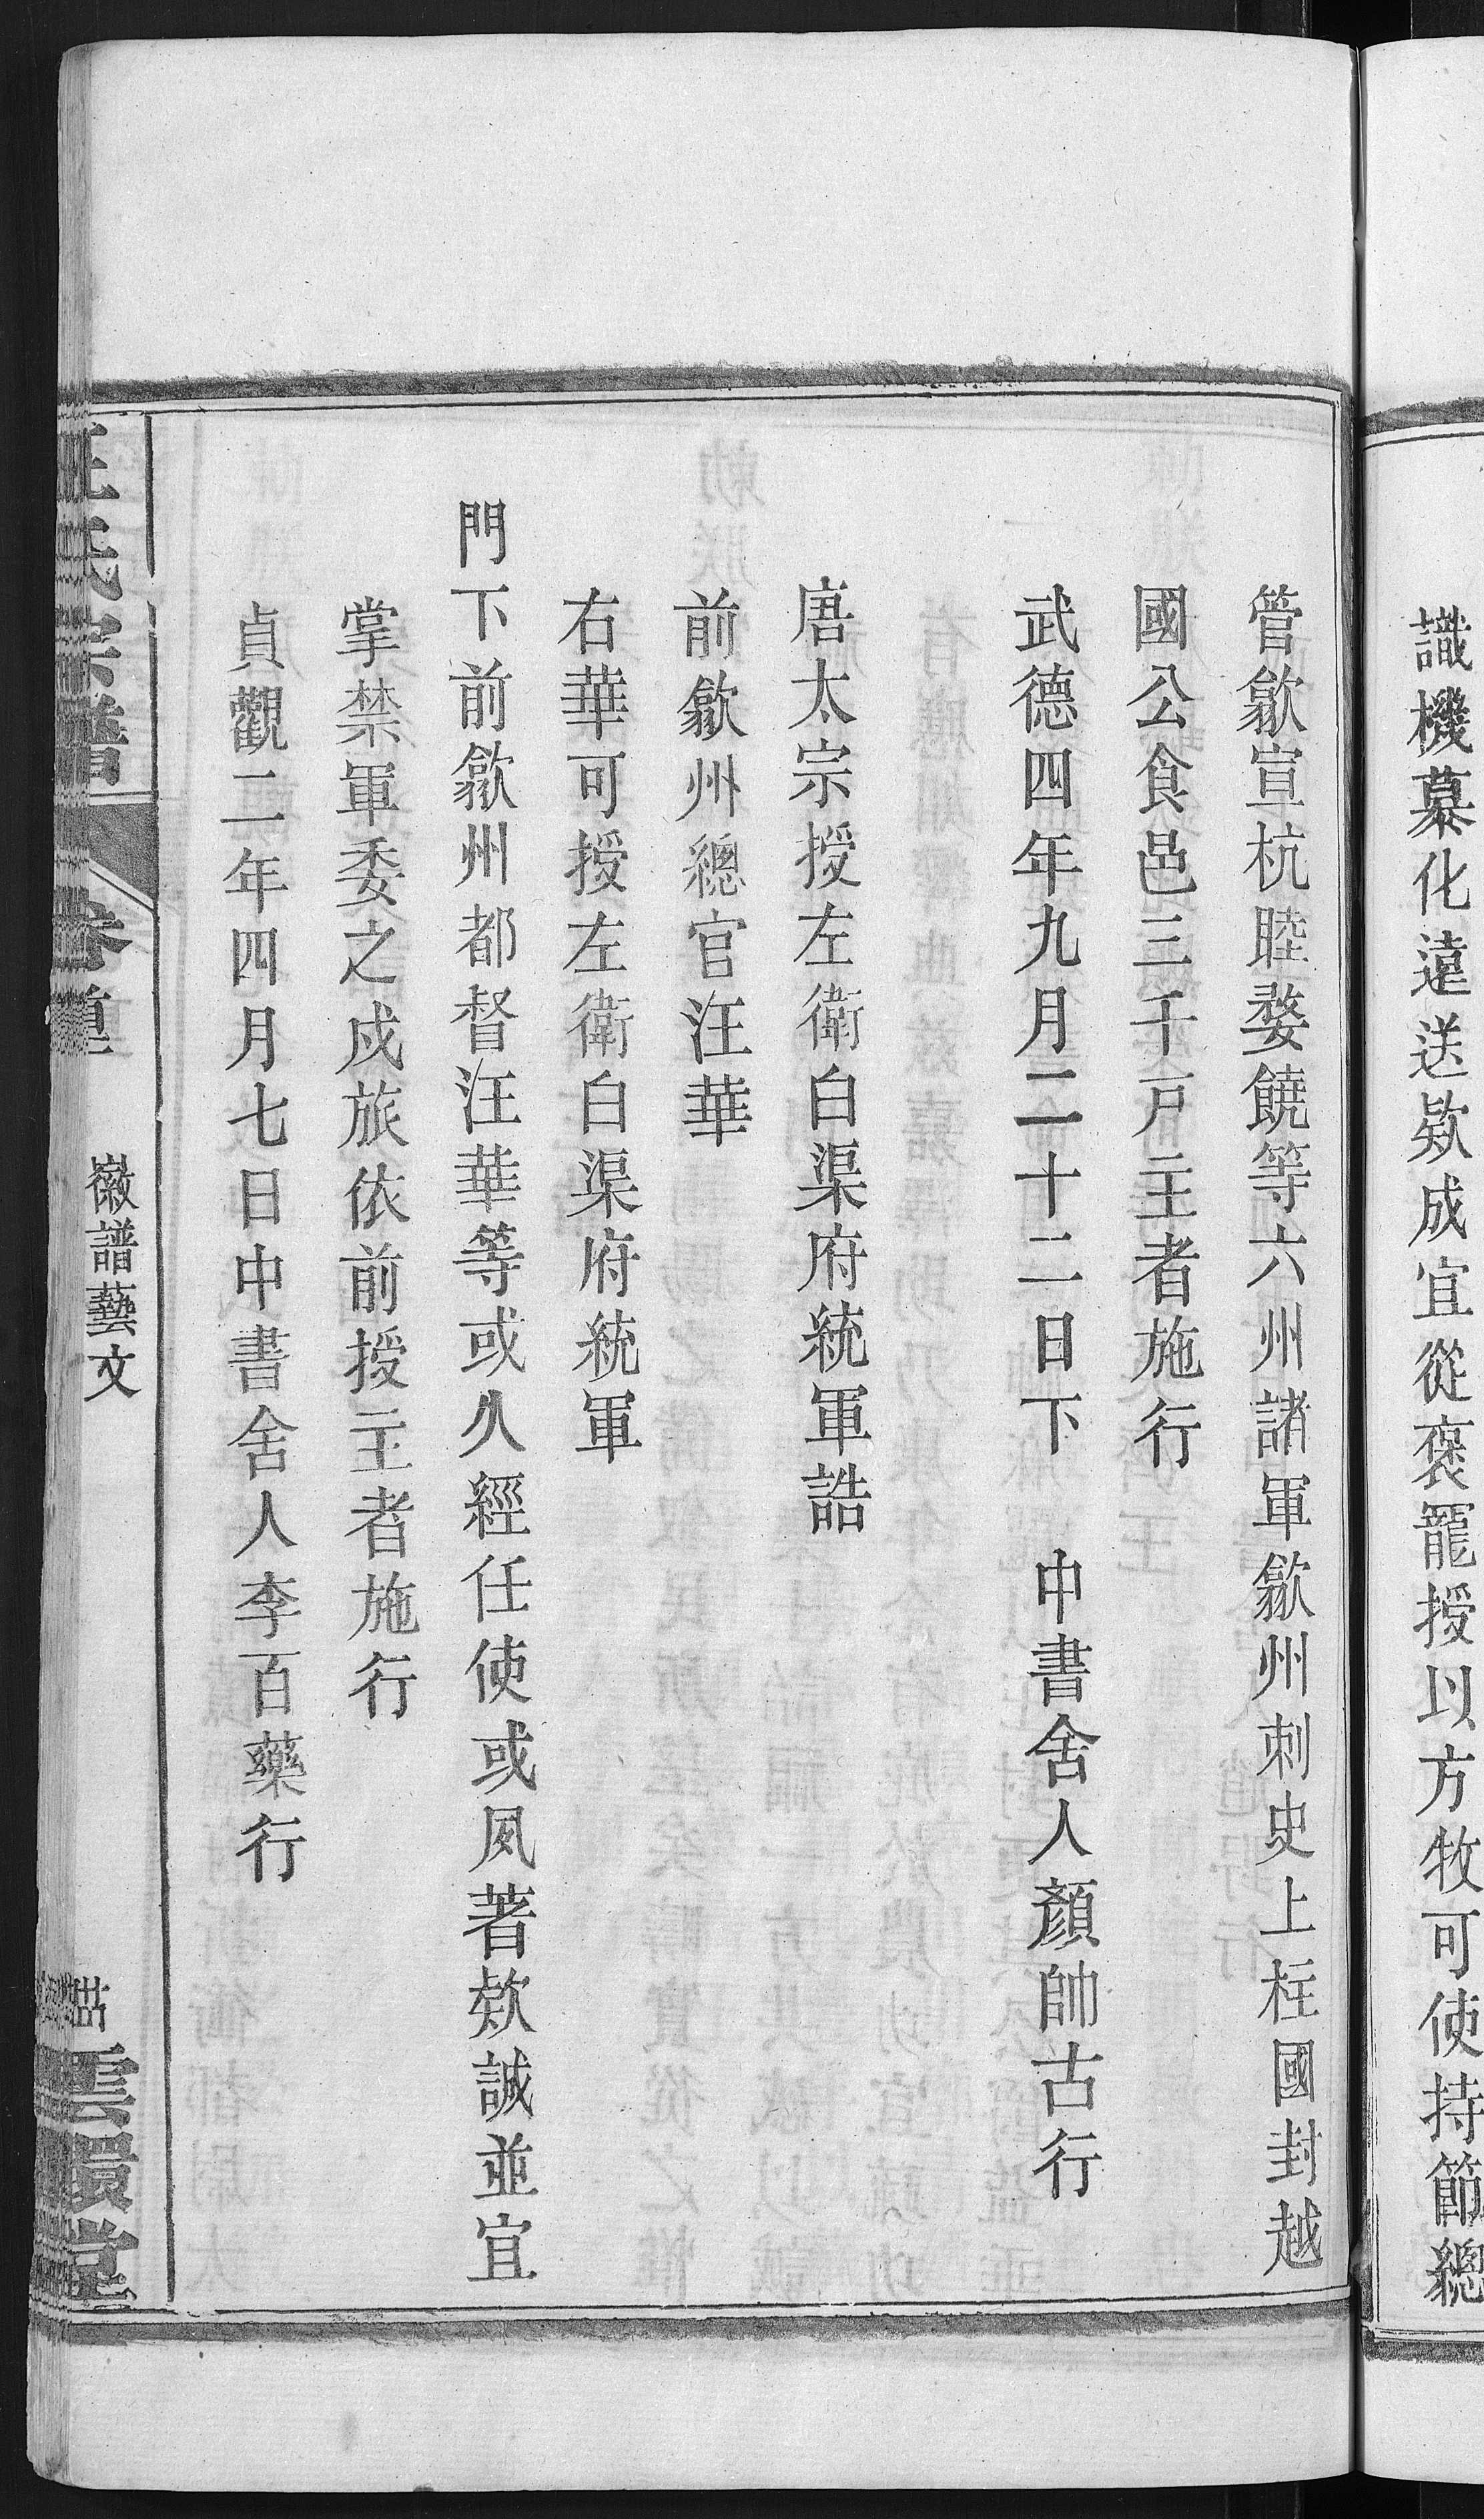 識機慕化遠送欵成宜從褒寵授以方牧可使持節總
管歙宣杭睦婺饒等六州諸軍歙州刺史上柱國封越
國公食邑三千戸主者施行
武德四年九月二十二日下　中書舍人顏帥古行
唐太宗授左衛白渠府統軍誥
前歙州總官汪華
右華可授左衛白渠府統軍
門下前歙州都督汪華等或久經任使或夙著欵誠並宜
掌禁軍委之戍旅依前授主者施行
貞觀二年四月七日中書舍人李百藥行
汪氏宗譜
卷首
徽譜藝文
雲環堂